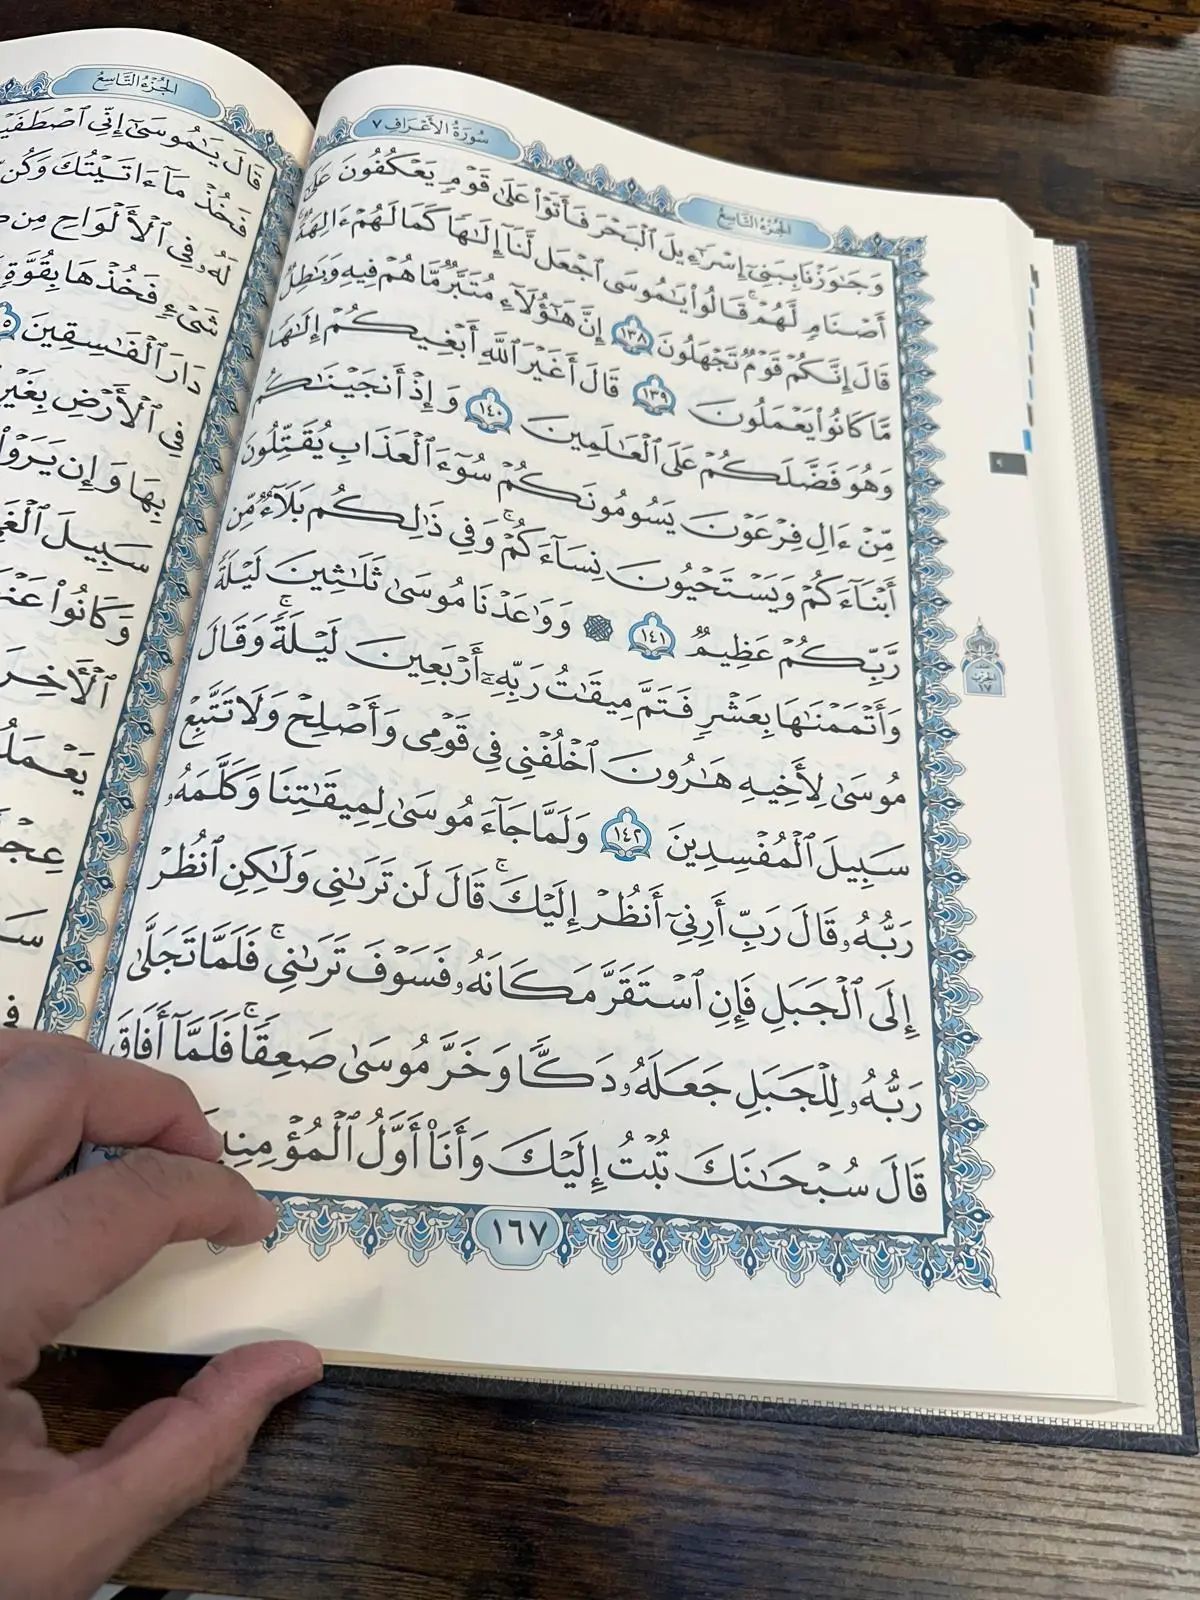 سُورَةُ الأَعْرَافِ ٧
الجُزْءُ التَّاسِعُ
وَجَٰوَزْنَا بِبَنِىٓ إِسْرَٰٓءِيلَ ٱلْبَحْرَ فَأَتَوْا۟ عَلَىٰ قَوْمٍ يَعْكُفُونَ عَلَىٰٓ
أَصْنَامٍ لَّهُمْ ۚ قَالُوا۟ يَٰمُوسَى ٱجْعَل لَّنَآ إِلَٰهًا كَمَا لَهُمْ ءَالِهَةٌ ۚ
قَالَ إِنَّكُمْ قَوْمٌ تَجْهَلُونَ ١٣٨ إِنَّ هَٰٓؤُلَآءِ مُتَبَّرٌ مَّا هُمْ فِيهِ وَبَٰطِلٌ
مَّا كَانُوا۟ يَعْمَلُونَ ١٣٩ قَالَ أَغَيْرَ ٱللَّهِ أَبْغِيكُمْ إِلَٰهًا
وَهُوَ فَضَّلَكُمْ عَلَى ٱلْعَٰلَمِينَ ١٤٠ وَإِذْ أَنجَيْنَٰكُم
مِّنْ ءَالِ فِرْعَوْنَ يَسُومُونَكُمْ سُوٓءَ ٱلْعَذَابِ يُقَتِّلُونَ
أَبْنَآءَكُمْ وَيَسْتَحْيُونَ نِسَآءَكُمْ ۚ وَفِى ذَٰلِكُم بَلَآءٌ مِّن
رَّبِّكُمْ عَظِيمٌ ١٤١ ۞ وَوَٰعَدْنَا مُوسَىٰ ثَلَٰثِينَ لَيْلَةً
وَأَتْمَمْنَٰهَا بِعَشْرٍ فَتَمَّ مِيقَٰتُ رَبِّهِۦٓ أَرْبَعِينَ لَيْلَةً ۚ وَقَالَ
مُوسَىٰ لِأَخِيهِ هَٰرُونَ ٱخْلُفْنِى فِى قَوْمِى وَأَصْلِحْ وَلَا تَتَّبِعْ
سَبِيلَ ٱلْمُفْسِدِينَ ١٤٢ وَلَمَّا جَآءَ مُوسَىٰ لِمِيقَٰتِنَا وَكَلَّمَهُۥ
رَبُّهُۥ قَالَ رَبِّ أَرِنِىٓ أَنظُرْ إِلَيْكَ ۚ قَالَ لَن تَرَىٰنِى وَلَٰكِنِ ٱنظُرْ
إِلَى ٱلْجَبَلِ فَإِنِ ٱسْتَقَرَّ مَكَانَهُۥ فَسَوْفَ تَرَىٰنِى ۚ فَلَمَّا تَجَلَّىٰ
رَبُّهُۥ لِلْجَبَلِ جَعَلَهُۥ دَكًّا وَخَرَّ مُوسَىٰ صَعِقًا ۚ فَلَمَّآ أَفَاقَ
قَالَ سُبْحَٰنَكَ تُبْتُ إِلَيْكَ وَأَنَا۠ أَوَّلُ
١٦٧
الحِزْب
١٧
الجُزْءُ التَّاسِعُ
قَالَ يَٰمُوسَىٰٓ إِنِّى
فَخُذْ مَآ ءَاتَيْتُكَ وَكُن
لَهُۥ فِى ٱلْأَلْوَاحِ مِن
شَىْءٍ فَخُذْهَا بِقُوَّةٍ
دَارَ ٱلْفَٰسِقِينَ
فِى ٱلْأَرْضِ بِغَيْرِ
بِهَا وَإِن يَرَوْا۟
سَبِيلَ
وَكَانُوا۟